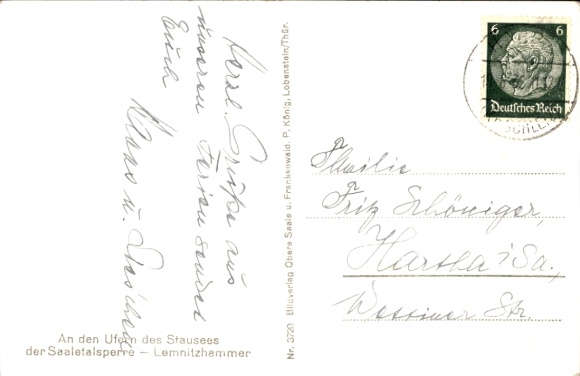 Herzl. Grüße aus
unseren Ferien sendet
Euch
Klaus u.
An den Ufern des Stausees
der Saaletalsperre — Lemnitzhammer
Nr. 3720 Bildverlag Obere Saale u. Frankenwald, P. König, Lobenstein/Thür.
6 6
Deutsches Reich
SCHLEIZ
Familie
Fritz Schöniger,
Hartha i/Sa.,
Wettiner Str.